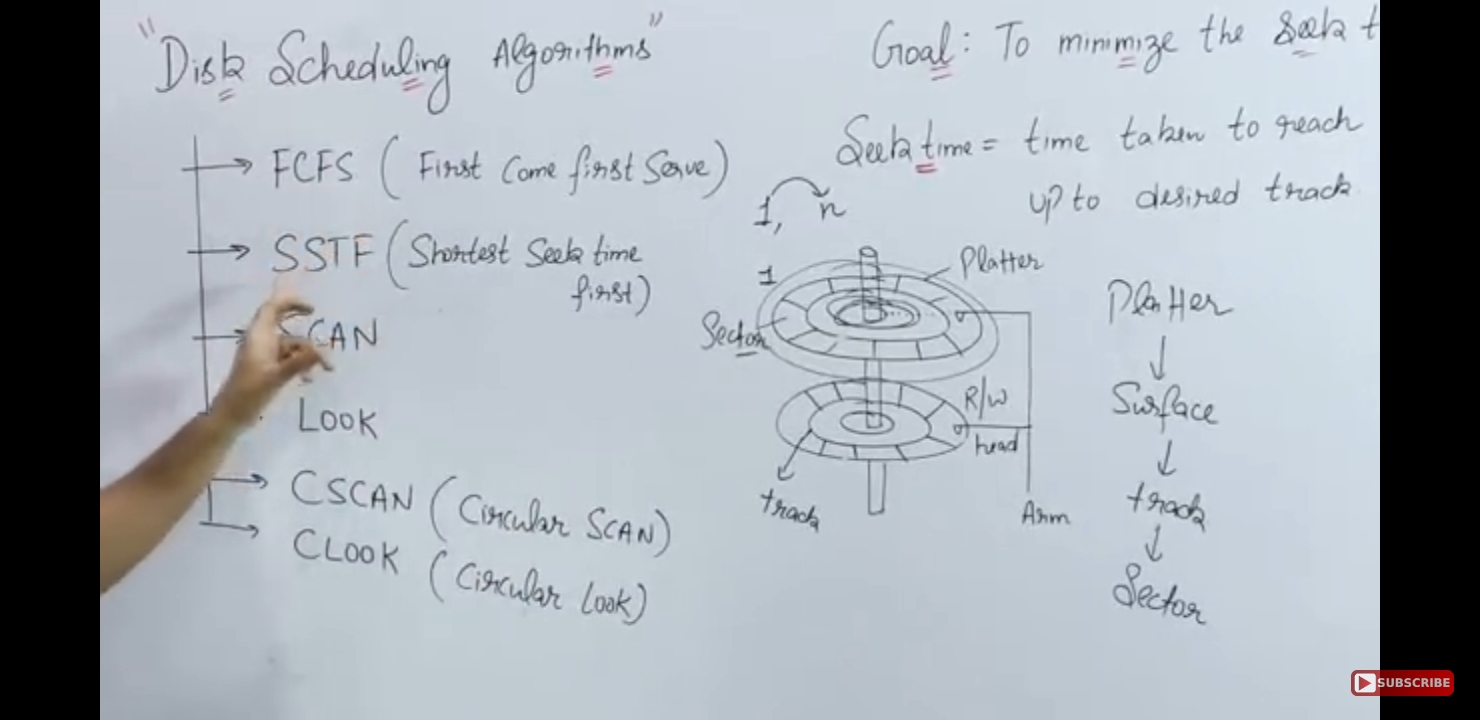 "Disk Scheduling Algorithms"
FCFS ( First Come first Serve)
SSTF (Shortest Seek time
first)
SCAN
LOOK
CSCAN (Circular SCAN)
CLOOK (Circular Look)
Goal: To minimize the Seek t
Seek time = time taken to reach
up to desired track
1, n
1
Platter
Sector
R/W
head
track
Arm
Platter
Surface
track
Sector
SUBSCRIBE